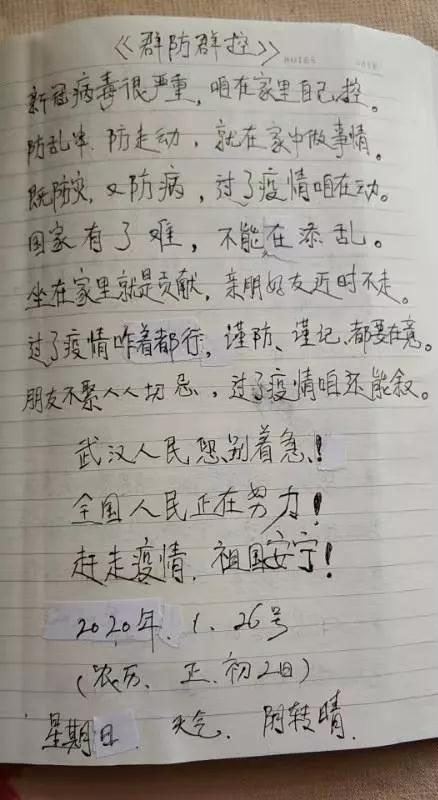 《群防群控》
NOTES DATE
新冠病毒很严重，咱在家里自己控。
防乱串、防走动，就在家中做事情。
既防灾，又防病，过了疫情咱在动。
国家有了难，不能在添乱。
坐在家里就是贡献，亲朋好友近时不走。
过了疫情咋着都行，谨防、谨记、都要在意。
朋友不聚人人切忌，过了疫情咱还能叙。
武汉人民您别着急！
全国人民正在努力！
赶走疫情，祖国安宁！
2020年.1.26号
（农历、正.初2日）
星期日 天气、阴转晴.